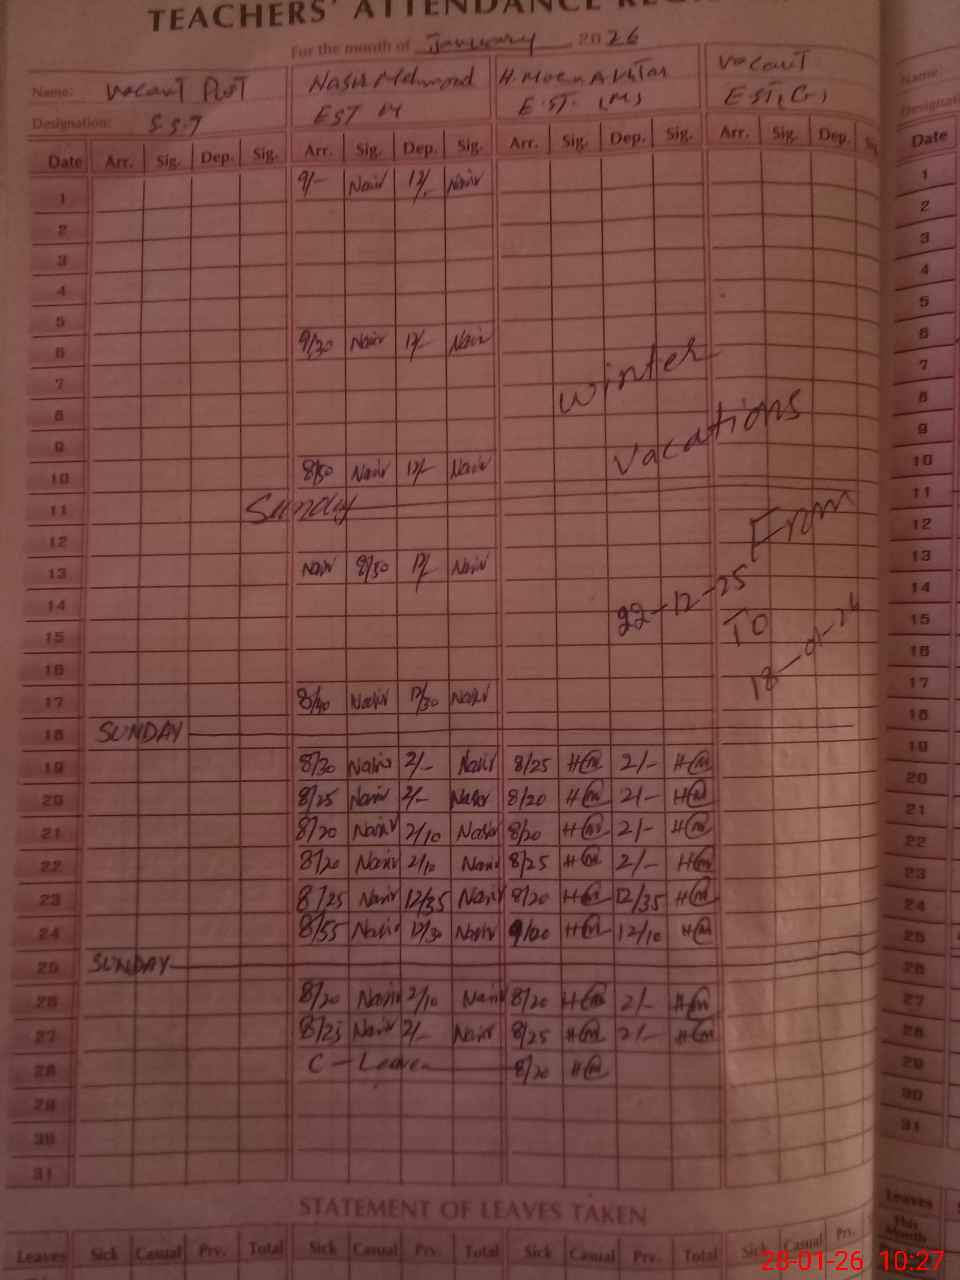 TEACHERS' ATTENDANCE
For the month of January 2026
Name: Vacant Post Nasir Mehmood H. Moen Akhtar Vacant
Designation: S.S.T EST M E.ST. (M) EST,(G)
Date Arr. Sig. Dep. Sig. Arr. Sig. Dep. Sig. Arr. Sig. Dep. Sig. Arr. Sig. Dep. Date
1 9/- Nasir 12/- Nasir 1
2 2
3 3
4 4
5 5
6 9/30 Nasir 12/- Nasir 6
7 7
8 winter 8
9 vacations 9
10 8/50 Nasir 12/- Nasir 10
11 Sunday 11
12 From 12
13 Nasir 8/30 12/- Nasir 13
14 22-12-25 14
15 TO 15
16 18-01-26 16
17 8/40 Nasir 12/30 Nasir 17
18 SUNDAY 18
19 8/30 Nasir 2/- Nasir 8/25 H(m) 2/- H(m) 19
20 8/25 Nasir 2/- Nasir 8/20 H(m) 2/- H(m) 20
21 8/20 Nasir 2/10 Nasir 8/20 H(m) 2/- H(m) 21
22 8/20 Nasir 2/10 Nasir 8/25 H(m) 2/- H(m) 22
23 8/25 Nasir 12/35 Nasir 8/20 H(m) 12/35 H(m) 23
24 8/55 Nasir 12/30 Nasir 9/00 H(m) 12/10 H(m) 24
25 SUNDAY 25
26 8/20 Nasir 2/10 Nasir 8/20 H(m) 2/- H(m) 26
27 8/25 Nasir 2/- Nasir 8/25 H(m) 2/- H(m) 27
28 C-Leave 8/20 H(m) 28
29 29
30 30
31 31
STATEMENT OF LEAVES TAKEN
Leaves Sick Casual Prv. Total Sick Casual Prv. Total Sick Casual Prv. Total Sick Casual Prv. Leaves
This
Month
28-01-26 10:27